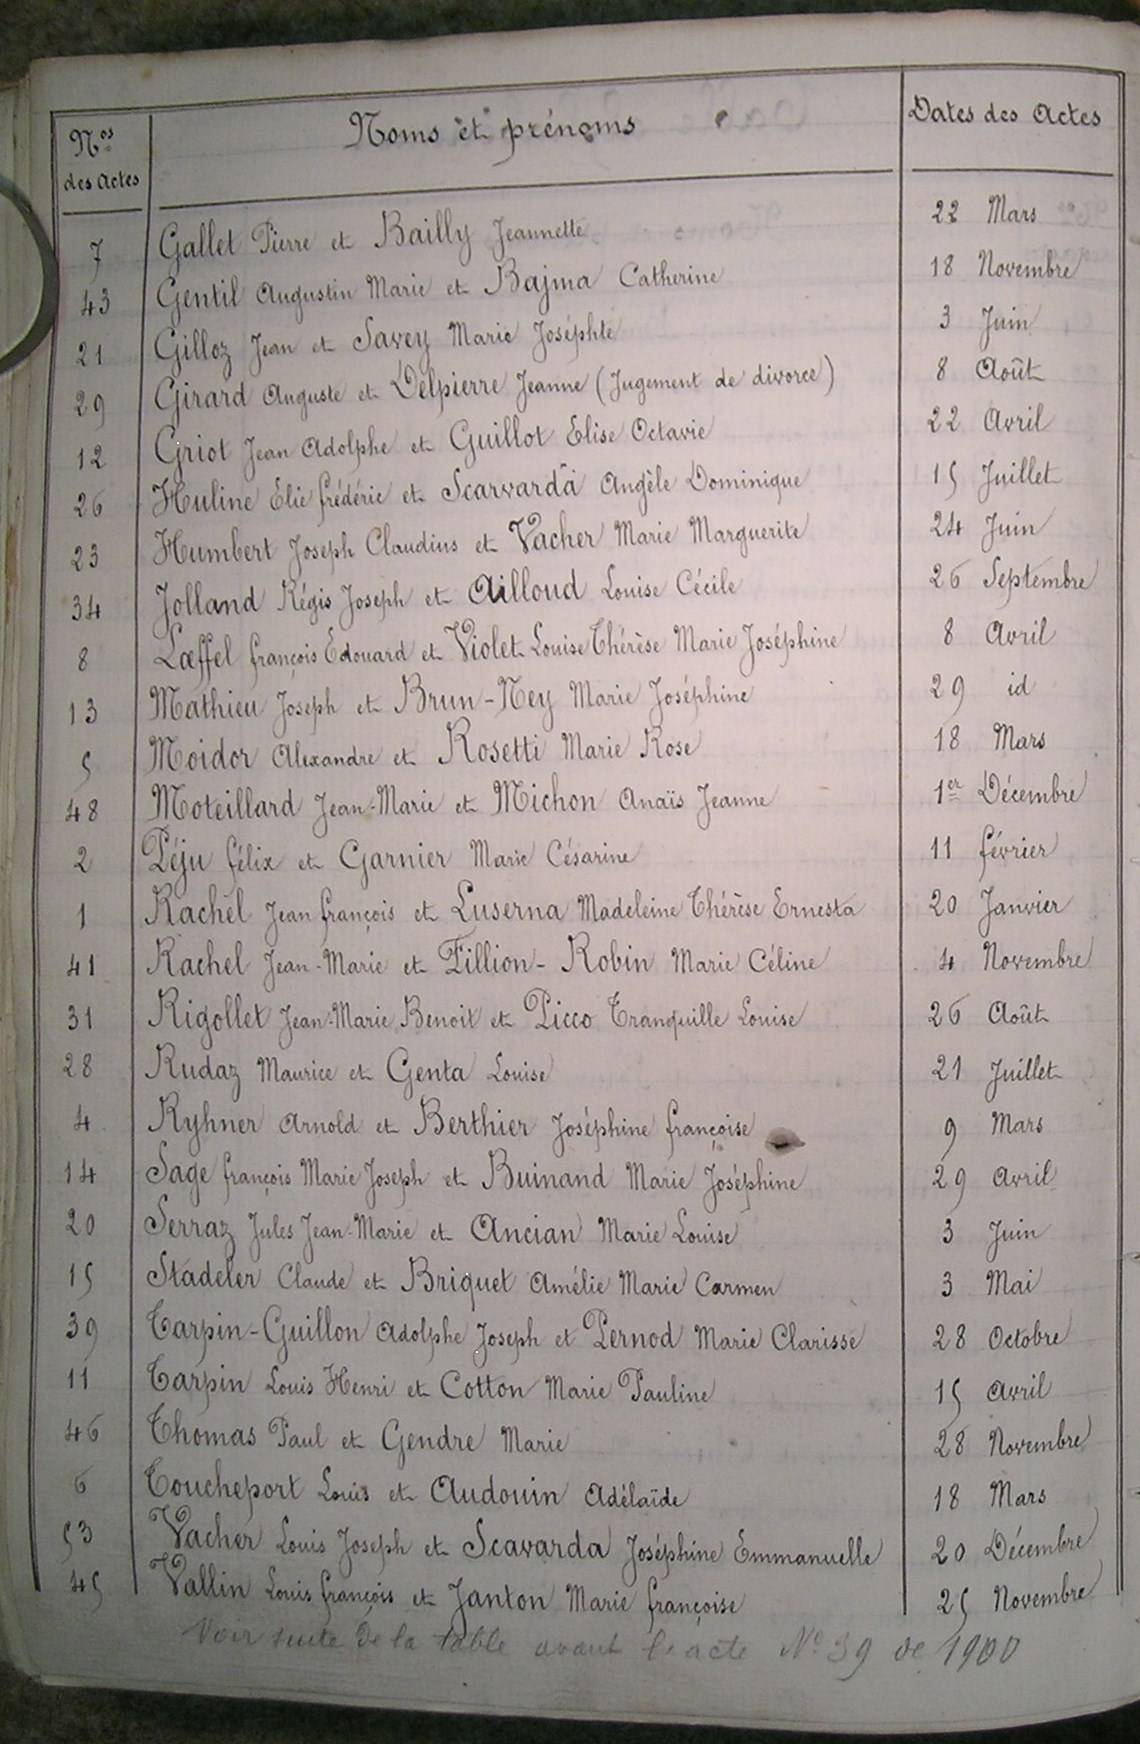 Nos des Actes Noms et prénoms Dates des Actes
7 Gallet Pierre et Bailly Jeannette 22 Mars
43 Gentil Augustin Marie et Bajma Catherine 18 Novembre
21 Gilloz Jean et Savey Marie Joséphte 3 Juin
29 Girard Auguste et Delpierre Jeanne (Jugement de divorce) 8 Août
12 Griot Jean Adolphe et Guillot Elise Octavie 22 Avril
26 Huline Elie frédéric et Scarvarda Angèle Dominique 15 Juillet
23 Humbert Joseph Claudius et Vacher Marie Marguerite 24 Juin
34 Jolland Régis Joseph et Ailloud Louise Cécile 26 Septembre
8 Lœffel françois Edouard et Violet Louise Thérèse Marie Joséphine 8 Avril
13 Mathieu Joseph et Brun-Ney Marie Joséphine 29 id
5 Moidor Alexandre et Rosetti Marie Rose 18 Mars
48 Moteillard Jean-Marie et Michon Anaïs Jeanne 1er Décembre
2 Péju félix et Garnier Marie Césarine 11 février
1 Rachel Jean françois et Luserna Madeleine Thérèse Ernesta 20 Janvier
41 Rachel Jean-Marie et Fillion-Robin Marie Céline 4 Novembre
31 Rigollet Jean-Marie Benoit et Picco Tranquille Louise 26 Août
28 Rudaz Maurice et Genta Louise 21 Juillet
4 Ryhner Arnold et Berthier Joséphine françoise 9 Mars
14 Sage françois Marie Joseph et Buinand Marie Joséphine 29 Avril
20 Serraz Jules Jean-Marie et Ancian Marie Louise 3 Juin
15 Stadeler Claude et Briquet Amélie Marie Carmen 3 Mai
39 Tarpin-Guillon Adolphe Joseph et Pernod Marie Clarisse 28 Octobre
11 Tarpin Louis Henri et Cotton Marie Pauline 15 Avril
46 Thomas Paul et Gendre Marie 28 Novembre
6 Toucheport Louis et Audouin Adélaïde 18 Mars
53 Vacher Louis Joseph et Scavarda Joséphine Emmanuelle 20 Décembre
45 Vallin Louis françois et Janton Marie françoise 25 Novembre
Voir suite de la table avant l'acte No 39 de 1900